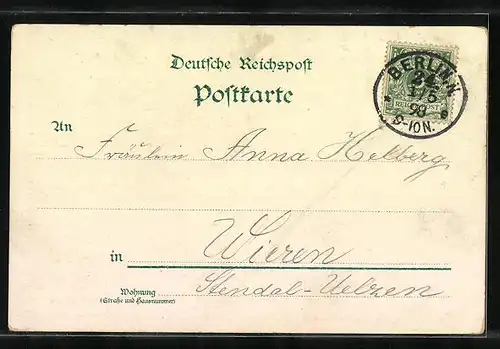 Deutsche Reichspost
Postkarte
BERLIN
24
1/5
98
9-10N.
An
Fräulein Anna Helberg
in Wieren
Stendal-Uelzen
Wohnung
(Straße und Hausnummer)